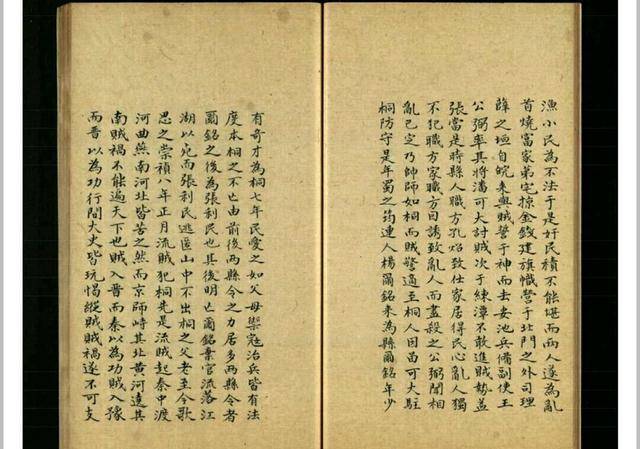 漁小民為不法于是奸民積不能堪而兩人遂為亂
首燒富家第宅掠金錢建旗幟營于北門之外司理
薛之垣自皖來與賊誓于神而去安池兵備副使王
公弼率其將潘可大討賊次于練潭不敢進賊勢益
張當是時縣人職方孔炤致仕家居得民心亂人獨
不犯職方家職方因誘致亂人而盡殺之公弼聞桐
亂已定乃帥師如桐而賊警適至桐人因留可大駐
桐防守是年蜀之筠連人楊爾銘來為縣爾銘年少
有奇才為桐七年民愛之如父母禦寇治兵皆有法
度本桐之不亡由前後兩縣令之力居多兩縣令者
爾銘之後為張利民也其後明亡爾銘棄官流落江
湖以死而張利民逃匿山中不出桐之父老至今歌
思之崇禎八年正月流賊犯桐先是流賊起秦中渡
河曲燕南河北皆苦之然而京師峙其北黃河遶其
南賊禍不能遍天下也賊入晉而秦以為功賊入豫
而晉以為功行間大吏皆玩愒縱賊賊禍遂不可支